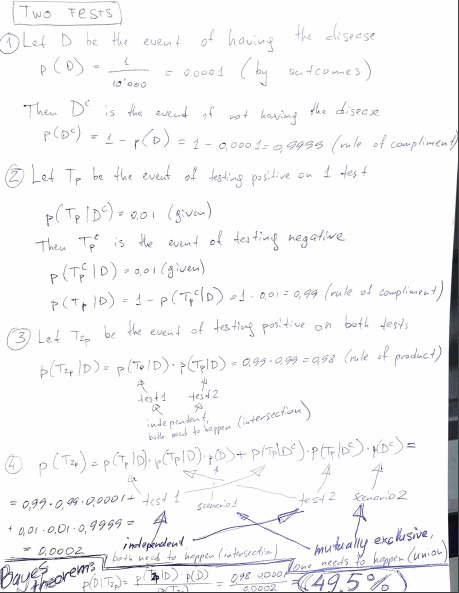 TWO TESTS
① Let D be the event of having the disease
p(D) = 1/10'000 = 0.0001 (by outcomes)
Then Dᶜ is the event of not having the disease
p(Dᶜ) = 1 - p(D) = 1 - 0,0001 = 0,9999 (rule of compliment)
② Let Tp be the event of testing positive on 1 test
p(Tp|Dᶜ) = 0,01 (given)
Then Tpᶜ is the event of testing negative
p(Tpᶜ|D) = 0,01 (given)
p(Tp|D) = 1 - p(Tpᶜ|D) = 1 - 0,01 = 0,99 (rule of compliment)
③ Let T2p be the event of testing positive on both tests
p(T2p|D) = p(Tp|D) · p(Tp|D) = 0.99 · 0.99 = 0,98 (rule of product)
test 1 test 2
independent,
both need to happen (intersection)
④ p(T2p) = p(Tp|D) · p(Tp|D) · p(D) + p(Tp|Dᶜ) · p(Tp|Dᶜ) · p(Dᶜ) =
= 0,99 · 0,99 · 0,0001 + test 1 scenario 1 test 2 scenario 2
+ 0,01 · 0,01 · 0,9999 =
= 0,0002
independent
both need to happen (intersection)
mutually exclusive,
one needs to happen (union)
Bayes theorem: p(D|T2p) = p(T2p|D) p(D) / p(T2p) = 0,98 · 0,0001 / 0.0002 = 49,5%